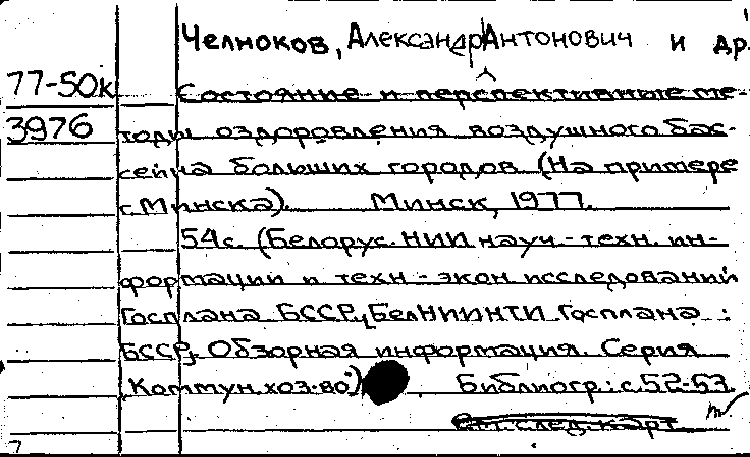 Челноков, Александр Антонович и др.
77-50к Состояние и перспективные ме-
3976 тоды оздоровления воздушного бас-
сейна больших городов (На примере
г. Минска). Минск, 1977.
54с. (Белорус. НИИ науч.-техн. ин-
формации и техн-экон. исследований
Госплана БССР, БелНИИНТИ Госплана
БССР, Обзорная информация. Серия
"Коммун. хоз-во") Библиогр.: с. 52-53.
См. след. карт
7